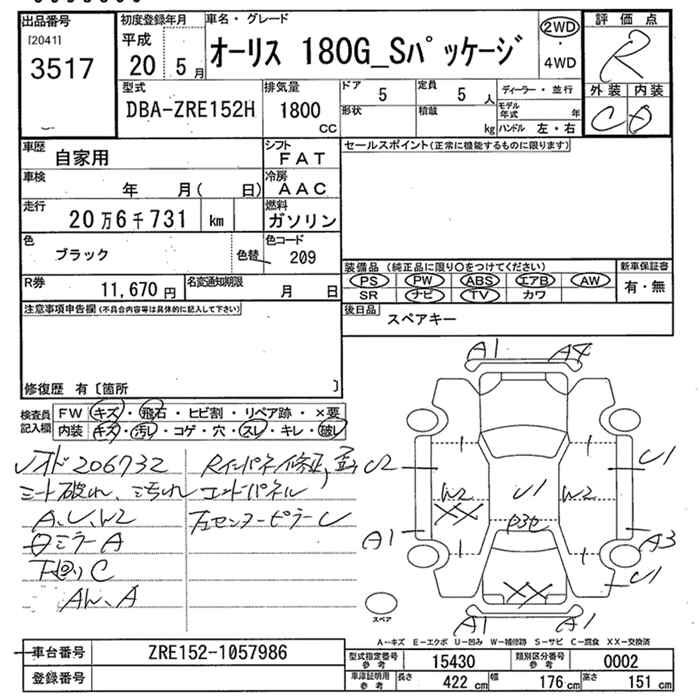 出品番号 初度登録年月 車名・グレード 評価点
[2041] 平成 オーリス 180G_Sパッケージ 2WD R
3517 20 5月 ・ 4WD
型式 排気量 ドア 5 定員 5人 ディーラー・並行 外装 内装
DBA-ZRE152H 1800cc 形状 積載 kg モデル年式 年 C D
ハンドル 左・右
車歴 自家用 シフト FAT セールスポイント(正常に機能するものに限ります)
車検 年 月( 日) 冷房 AAC
走行 20万6千731 km 燃料 ガソリン
色 ブラック 色替 色コード 209
装備品(純正品に限り○をつけてください) 新車保証書
R券 11,670円 名変通知期限 月 日 PS PW ABS エアB AW 有・無
SR ナビ TV カワ
注意事項申告欄(不具合内容等は具体的に記入して下さい) 後日品 スペアキー
修復歴 有〔箇所 〕
検査員記入欄 FW キズ・飛石・ヒビ割・リペア跡・×要
内装 キズ・汚レ・コゲ・穴・スレ・キレ・破レ
206732 Rインパネ修正
シート破れ、汚れ エンドパネル
A、U、W2 左センターピラーU
ミラーA
下廻りC
A1 A4
U2 U1
W2 U1 W2
XX
A1 A3
XX U1
A1 A1
スペア
A-キズ E-エクボ U-凹み W-補修跡 S-サビ C-腐食 XX-交換済
車台番号 ZRE152-1057986 型式指定番号 参考 15430 類別区分番号 参考 0002
登録番号 車庫証明用 参考 長さ 422cm 幅 176cm 高さ 151cm